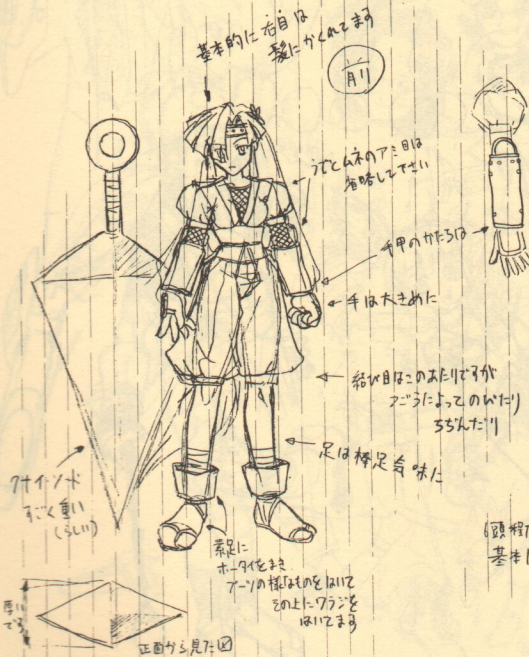 基本的に右目は
髪にかくれてます
前
うでとムネのアミ目は
省略して下さい
手甲のかたちは
手は大きめに
結び目はこのあたりですが
つごうによってのびたり
ちぢんだり
足は棒足気味に
クナイソード
すごく重い
(らしい)
素足に
ホータイをまき
ブーツの様なものをはいて
その上にワラジを
はいてます
6頭程
基本
厚い
です
正面から見た図